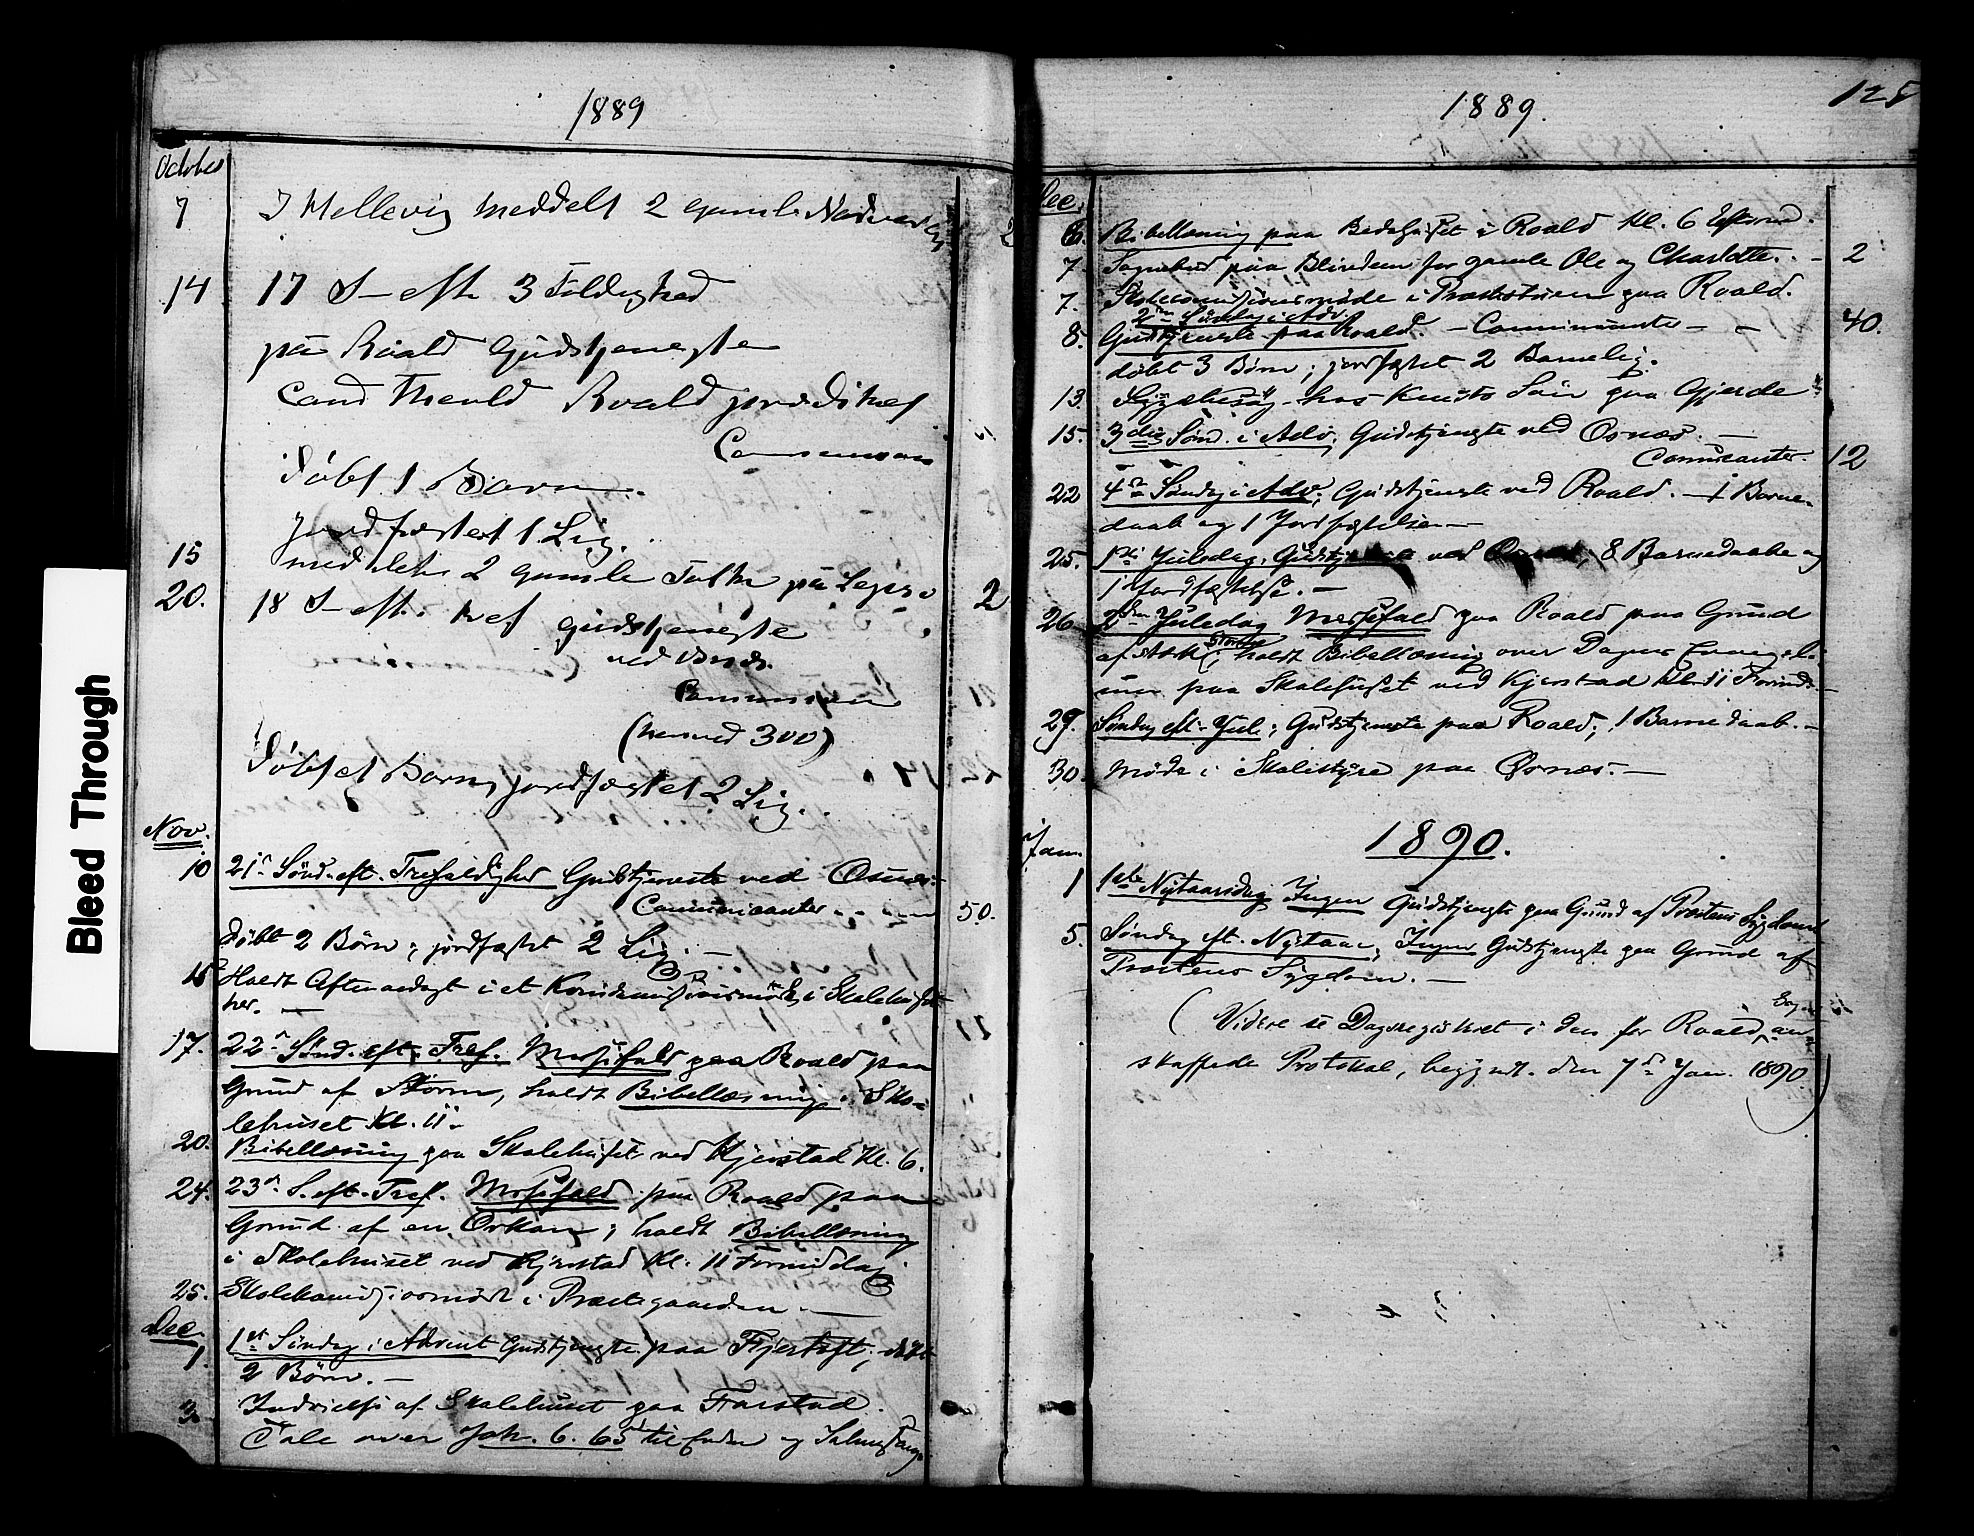 1889
October
7 I Mellevig meddelt 2 gamle 2
14 17 S. eft 3 Foldighed
på Roald Gudstjeneste
cand theol Roald prædiket
Communion
Døbt 1 Barn.
jordfæstet 1 Lig.
15 meddelt 2 gamle Folk på Lepsø 2
20. 18 S. eft. tref gudstjeneste
ved
Communion
(henved 300)
Døbt et Barn, jordfæstet 2 Lig.
Nov.
10 21n Sönd. eft. Trefoldighed Gudstjeneste ved Osnæs.
Communicanter 50.
døbt 2 Börn; jordfæstet 2 Lig. —
15 Holdt Aftensangt i et i Skolehuset
her. —
17. 22n Sönd. eft. Tref. Messefald paa Roald paa
Grund af Storm, holdt Bibellæsning i Sko-
lehuset Kl. 11.
20. Bibellæsning paa Skolehuset ved Kjerstad Kl. 6.
24. 23n S. eft. Tref. Messefald paa Roald paa
Grund af en Orkan; holdt Bibellæsning
i Skolehuset ved Kjerstad Kl. 11 Formiddag.
25. Skolekommissionsmöde i Præstegaarden. —
Dec.
1. 1ste Söndag i Advent Gudstjeneste paa Fjertoft; döbt
2 Börn. —
3. Indvielse af Skolehuset paa Farstad.
Tale over Joh. 6. 65 til Enden og
1889.
125
Dec.
6. Bibellæsning paa Bedehuset i Roald Kl. 6 Efterm.
7. Sognebud paa Blindem for gamle Ole og Charlotte. — 2
7. Skolecommissionsmöde i Præstestuen paa Roald.
2n Söndag i Adv.
8. Gudstjeneste paa Roald. — Communicanter — — 40.
døbt 3 Börn; jordfæstet 2 Barnelig.
13. Sygebesög hos Knuts Sön paa Gjerde
15. 3die Sönd. i Adv. Gudstjeneste ved Osnæs. —
Comunicanter. 12
22 4n Söndag i Adv; Gudstjeneste ved Roald. — 1 Barne-
daab og 1 Jordfæstelse —
25. 1ste Juledag, Gudstjeneste ved 8 Barnedaabe og
1 Jordfæstelse. —
26 2den Juledag Messefald paa Roald paa Grund
af Storm; holdt Bibellæsning over Dagens Evangeli-
um paa Skolehuset ved Kjerstad Kl. 11 Formid. —
29. Söndag eft. Jul; Gudstjeneste paa Roald; 1 Barnedaab. —
30. Möde i Skolestyre paa Osnæs. —
1890.
Jan.
1 1ste Nytaarsdag Ingen Gudstjeneste paa Grund af Præstens Sygdom
5. Söndag eft. Nytaar, Ingen Gudstjeneste paa Grund af
Præstens Sygdom. —
(Videre se Dagsregistret i den for Roald Sogn an-
skaffede Protokol, begyndt den 7de Jan. 1890.)
Bleed Through